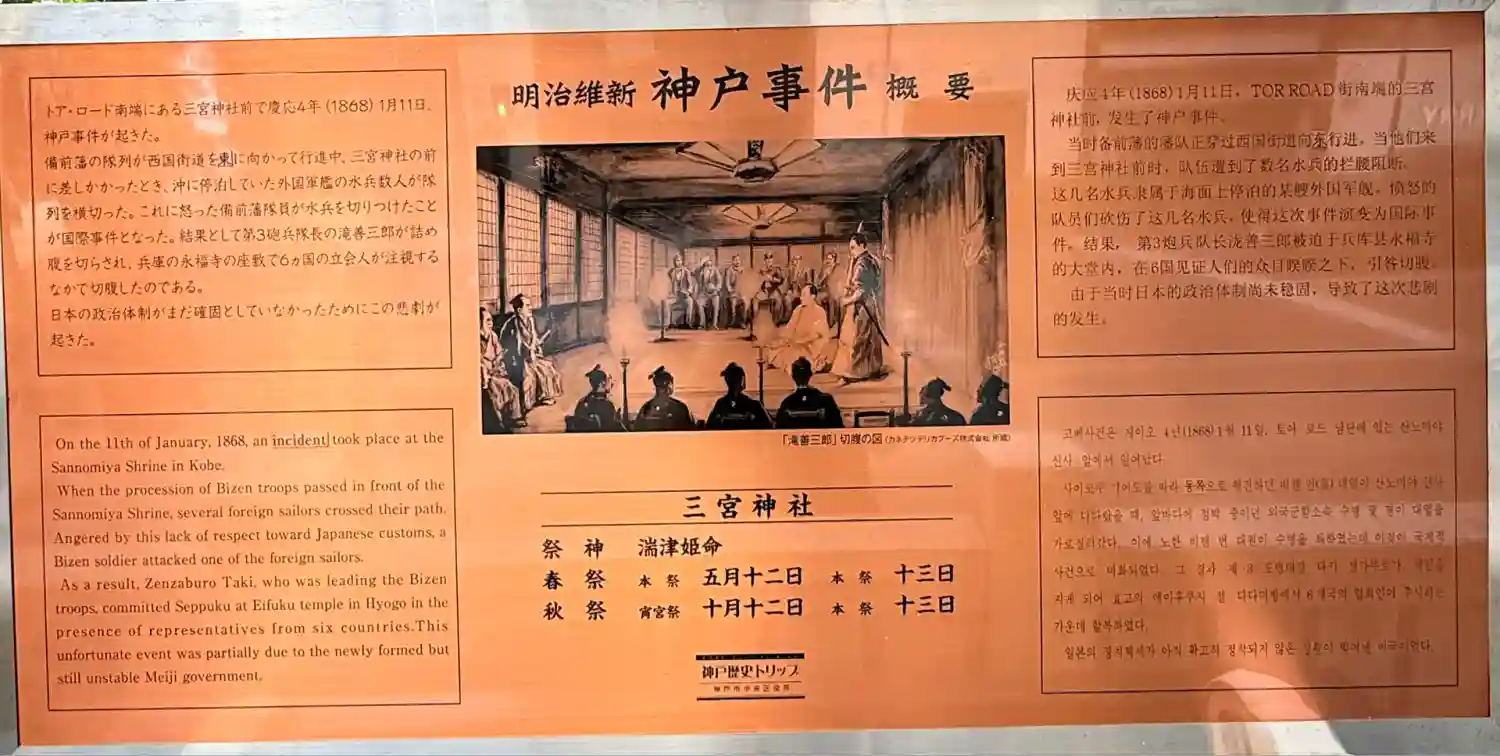 明治維新 神戸事件 概要
トア・ロード南端にある三宮神社前で慶応4年(1868)1月11日、
神戸事件が起きた。
備前藩の隊列が西国街道を東に向かって行進中、三宮神社の前
に差しかかったとき、沖に停泊していた外国軍艦の水兵数人が隊
列を横切った。これに怒った備前藩隊員が水兵を切りつけたこと
が国際事件となった。結果として第3砲兵隊長の滝善三郎が詰め
腹を切らされ、兵庫の永福寺の座敷で6ヵ国の立会人が注視する
なかで切腹したのである。
日本の政治体制がまだ確固としていなかったためにこの悲劇が
起きた。
On the 11th of January, 1868, an incident took place at the
Sannomiya Shrine in Kobe.
When the procession of Bizen troops passed in front of the
Sannomiya Shrine, several foreign sailors crossed their path.
Angered by this lack of respect toward Japanese customs, a
Bizen soldier attacked one of the foreign sailors.
As a result, Zenzaburo Taki, who was leading the Bizen
troops, committed Seppuku at Eifuku temple in Hyogo in the
presence of representatives from six countries.This
unfortunate event was partially due to the newly formed but
still unstable Meiji government.
「滝善三郎」切腹の図(カネテツデリカフーズ株式会社 所蔵)
三宮神社
祭神 湍津姫命
春祭 本祭 五月十二日 本祭 十三日
秋祭 宵宮祭 十月十二日 本祭 十三日
神戸歴史トリップ
神戸市中央区役所
庆应4年(1868)1月11日，TOR ROAD 街南端的三宫
神社前，发生了神户事件。
当时备前藩的藩队正穿过西国街道向东行进。当他们来
到三宫神社前时，队伍遭到了数名水兵的拦腰阻断。
这几名水兵隶属于海面上停泊的某艘外国军舰。愤怒的
队员们砍伤了这几名水兵，使得这次事件演变为国际事
件。结果，第3炮兵队长泷善三郎被迫于兵库县永福寺
的大堂内，在6国见证人们的众目睽睽之下，引咎切腹。
由于当时日本的政治体制尚未稳固，导致了这次悲剧
的发生。
고베사건은 게이오 4년(1868)1월 11일, 토아 로드 남단에 있는 산노미야
신사 앞에서 일어났다.
따라 동쪽으로 행진하던 비젠 번(藩) 대열이 산노미야 신사
앞에 다다랐을 때, 앞바다에 정박 중이던 외국군함소속 수병 몇 명이 대열을
가로질러갔다. 이에 노한 비젠 번 대원이 수병을
사건으로 비화되었다. 그 결과 제 3 포병대장
6개국의 입회인이 주시하는
가운데 할복하였다.
일본의 정치체제가 아직 확고히 정착되지 않은